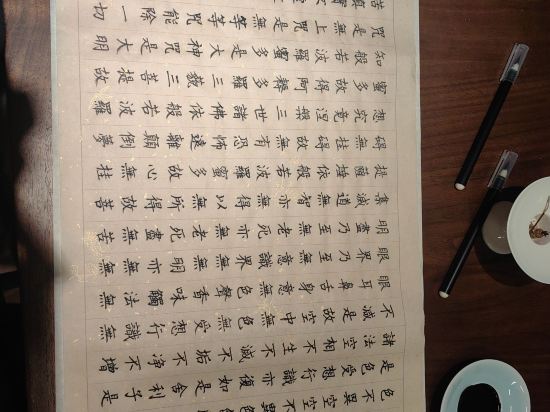 是色受想行識亦復如是舍利子是
諸法空相不生不滅不垢不淨不增
不減是故空中無色無受想行識無
眼耳鼻舌身意無色聲香味觸法無
眼界乃至無意識界無無明亦無無
明盡乃至無老死亦無老死盡無苦
集滅道無智亦無得以無所得故菩
提薩埵依般若波羅蜜多故心無挂
碍無挂碍故無有恐怖遠離顛倒夢
想究竟涅槃三世諸佛依般若波羅
蜜多故得阿耨多羅三藐三菩提故
知般若波羅蜜多是大神咒是大明
咒是無上咒是無等等咒能除一切